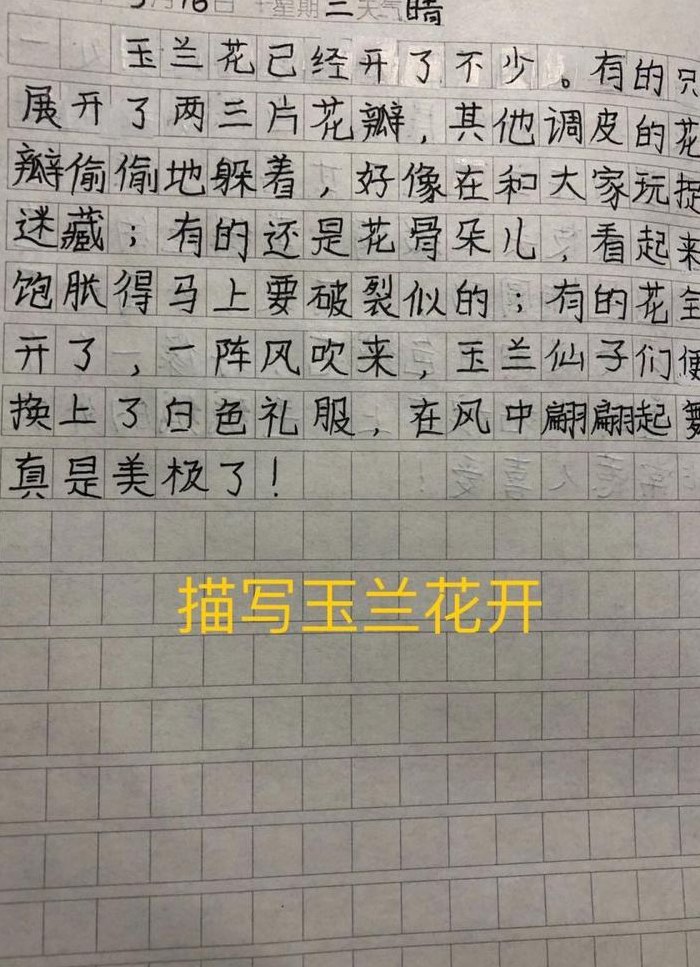 月16日 星期三天气晴
玉兰花已经开了不少。有的只
展开了两三片花瓣，其他调皮的花
瓣偷偷地躲着，好像在和大家玩捉
迷藏；有的还是花骨朵儿，看起来
饱胀得马上要破裂似的；有的花全
开了，一阵风吹来，玉兰仙子们便
换上了白色礼服，在风中翩翩起舞
真是美极了！
描写玉兰花开